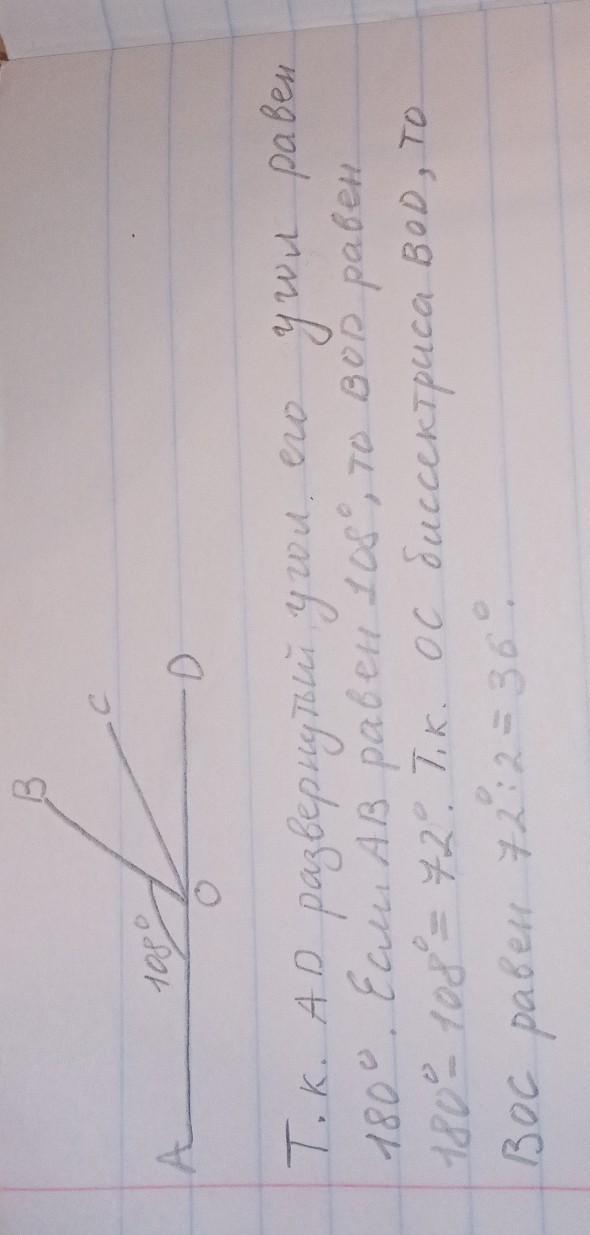 B
C
108°
A
O
D
Т.к. AD развернутый угол, его угол равен
180°. Если AB равен 108°, то BOD равен
180°-108°=72°. Т.к. OC биссектриса BOD, то
BOC равен 72°:2=36°.